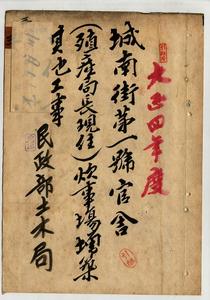 大正四年度
城南街第一號官舍
(殖產局長現住)炊事場增築
其他工事
民政部土木局